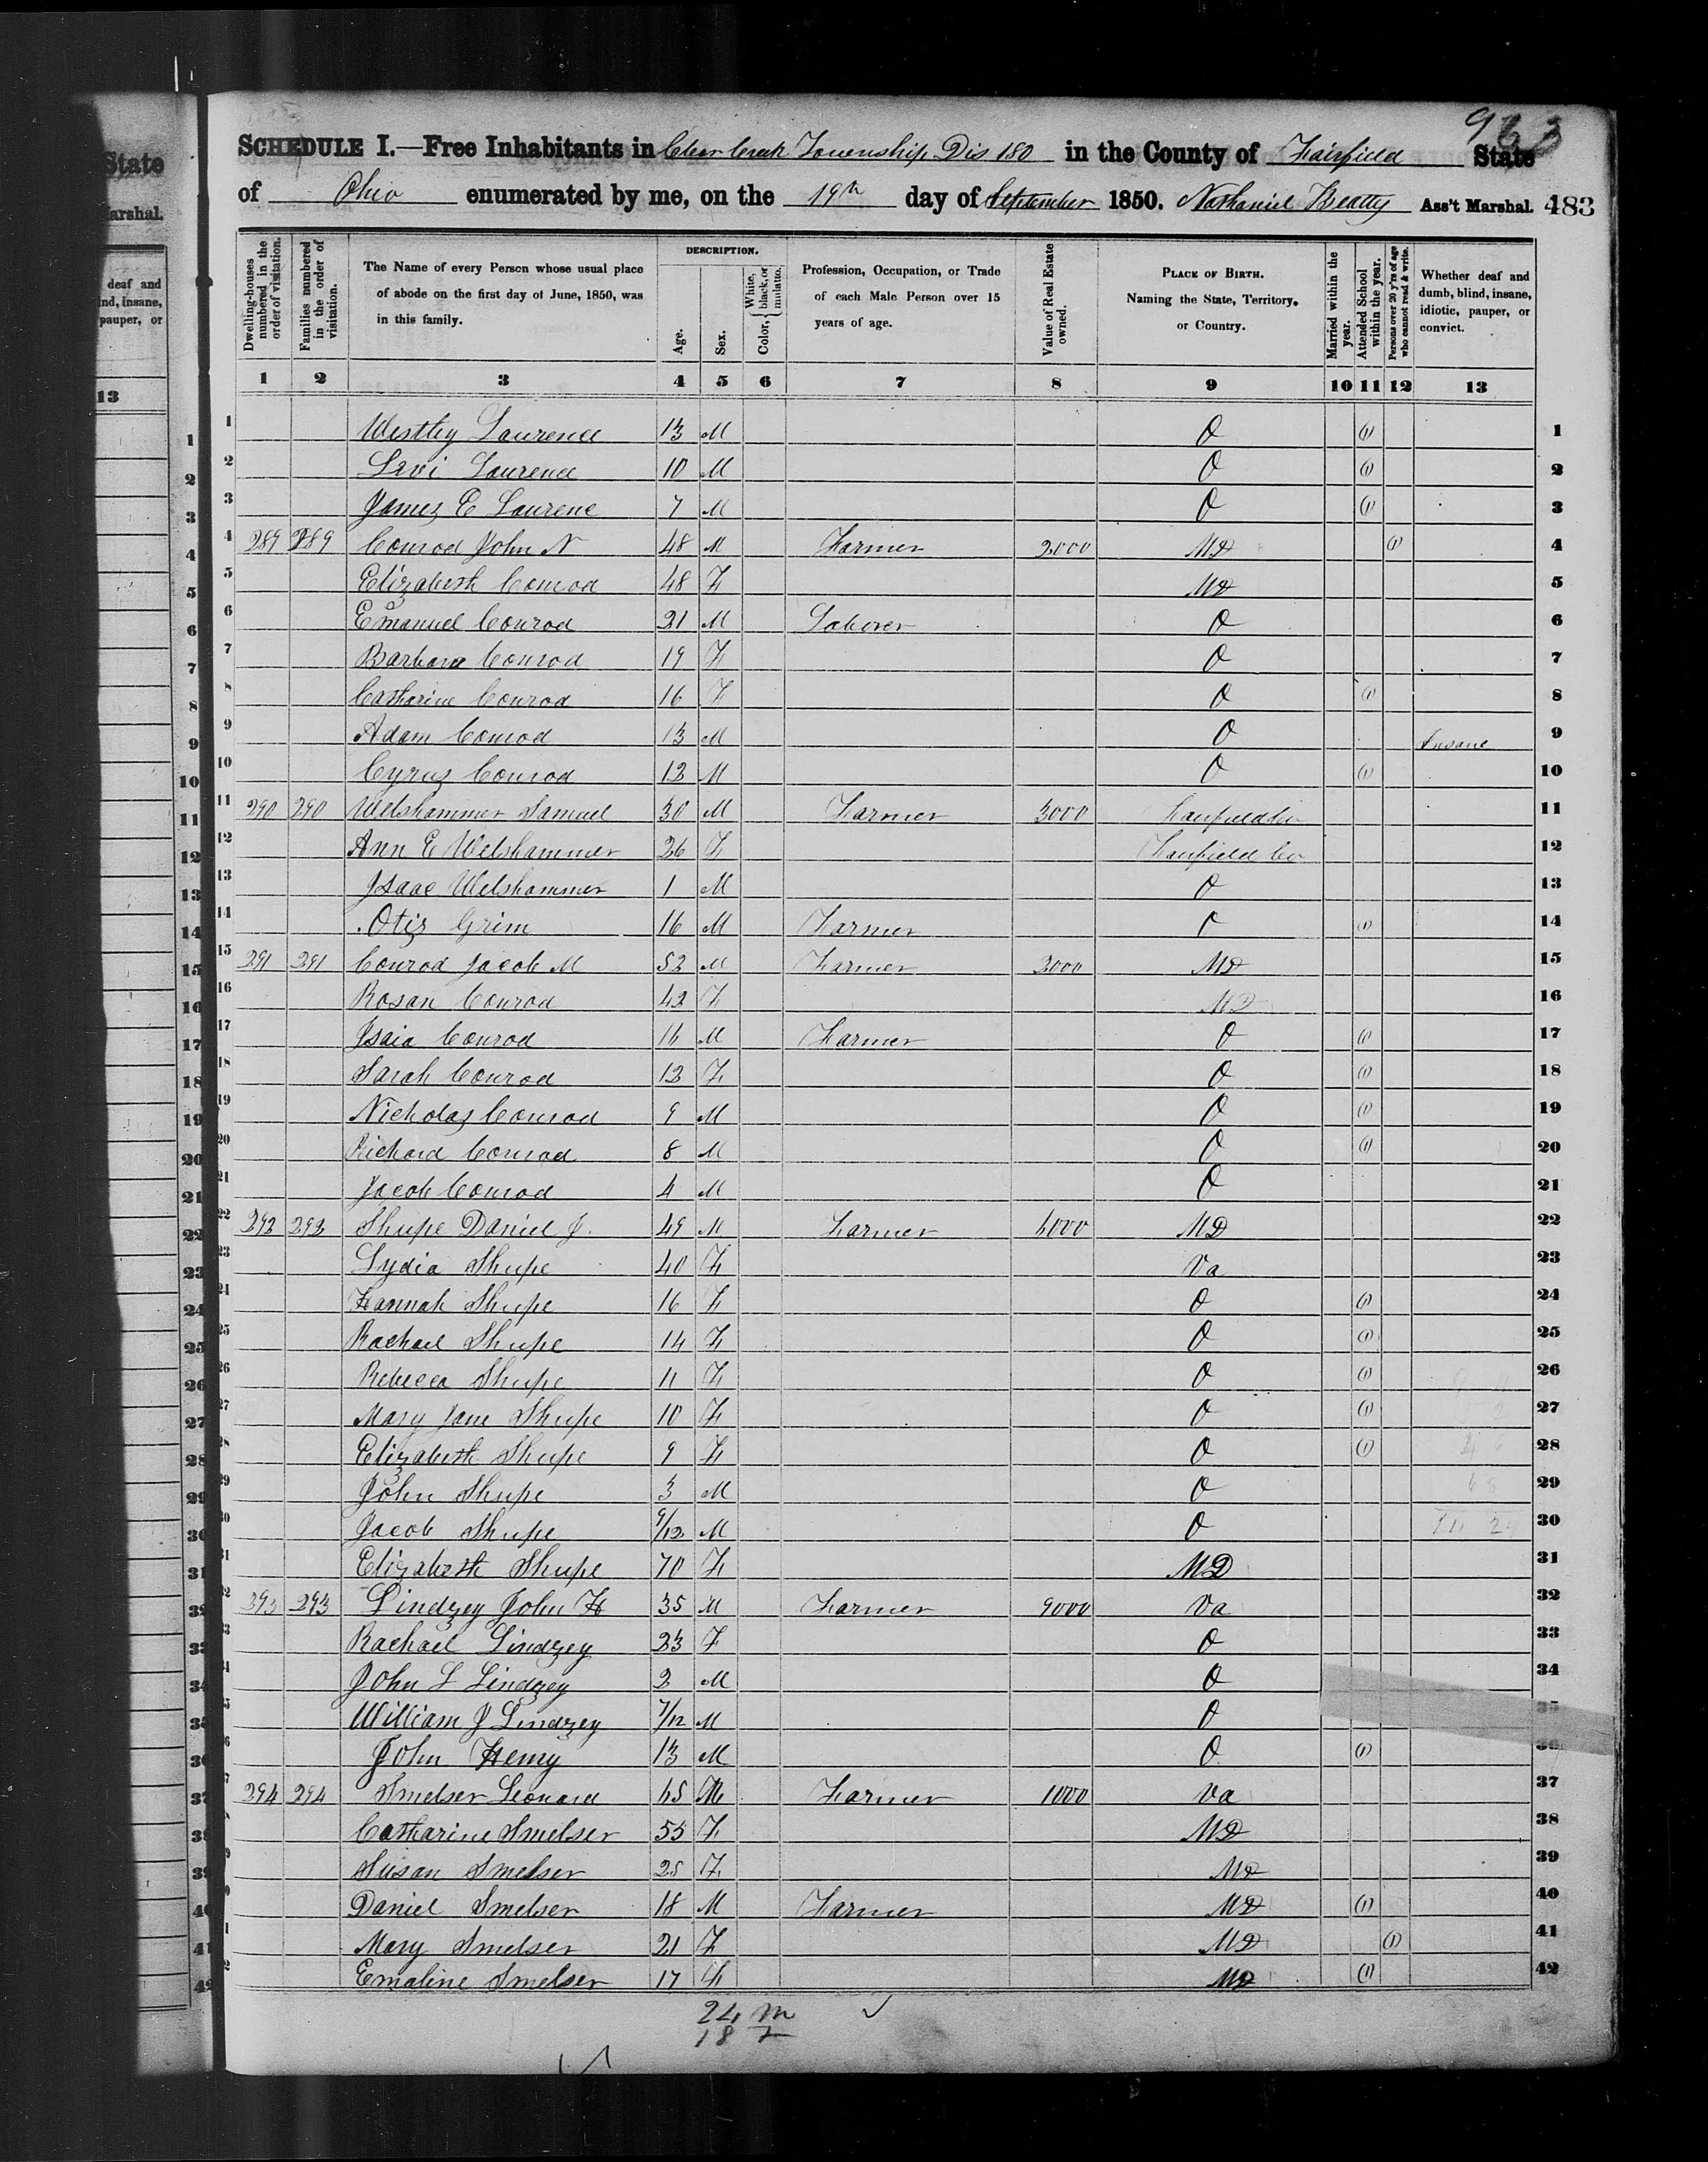 State
arshal.
deaf and
nd, insane,
pauper, or
13
963
SCHEDULE I.—Free Inhabitants in Clear Creek Township Dis 180 in the County of Fairfield State
of Ohio enumerated by me, on the 19th day of September 1850. Nathaniel Beatty Ass't Marshal. 483
Dwelling-houses numbered in the order of visitation.
Families numbered in the order of visitation.
The Name of every Person whose usual place of abode on the first day of June, 1850, was in this family.
DESCRIPTION.
Age.
Sex.
Color, { White, black, or mulatto.
Profession, Occupation, or Trade of each Male Person over 15 years of age.
Value of Real Estate owned.
PLACE OF BIRTH. Naming the State, Territory, or Country.
Married within the year.
Attended School within the year.
Persons over 20 y'rs of age who cannot read & write.
Whether deaf and dumb, blind, insane, idiotic, pauper, or convict.
1 2 3 4 5 6 7 8 9 10 11 12 13
1 Westley Laurence 13 M O (1) 1
2 Levi Laurence 10 M O (1) 2
3 James E Laurenc 7 M O (1) 3
4 289 289 Conrod John N 48 M Farmer 2000 MD (1) 4
5 Elizabeth Conrod 48 F MD 5
6 Emanuel Conrod 21 M Laborer O 6
7 Barbara Conrod 19 F O 7
8 Catharine Conrod 16 F O (1) 8
9 Adam Conrod 13 M O Insane 9
10 Cyrus Conrod 12 M O (1) 10
11 290 290 Welshammer Samuel 30 M Farmer 3000 Fairfield Co 11
12 Ann E Welshammer 26 F Fairfield Co 12
13 Isaac Welshammer 1 M O 13
14 Otis Grim 16 M Farmer O (1) 14
15 291 291 Conrod Jacob M 52 M Farmer 2000 MD 15
16 Rosan Conrod 42 F MD 16
17 Isaia Conrod 16 M Farmer O (1) 17
18 Sarah Conrod 12 F O (1) 18
19 Nicholas Conrod 9 M O (1) 19
20 Richard Conrod 8 M O (1) 20
21 Jacob Conrod 4 M O 21
22 292 292 Shupe Daniel J. 49 M Farmer 4000 MD 22
23 Lydia Shupe 40 F Va 23
24 Hannah Shupe 16 F O (1) 24
25 Rachael Shupe 14 F O (1) 25
26 Rebecca Shupe 11 F O (1) 26
27 Mary Jane Shupe 10 F O (1) 27
28 Elizabeth Shupe 9 F O (1) 28
29 John Shupe 3 M O 29
30 Jacob Shupe 9/12 M O 30
31 Elizabeth Shupe 70 F MD 31
32 293 293 Lindzey John H 35 M Farmer 9000 Va 32
33 Rachael Lindzey 23 F O 33
34 John L Lindzey 2 M O 34
35 William J Lindzey 7/12 M O 35
36 John Henry 13 M O (1) 36
37 294 294 Smelser Leonard 65 M Farmer 1000 Va 37
38 Catharine Smelser 55 F MD 38
39 Susan Smelser 25 F MD 39
40 Daniel Smelser 18 M Farmer MD (1) 40
41 Mary Smelser 21 F MD (1) 41
42 Emaline Smelser 17 F MD (1) 42
24 m
18 F